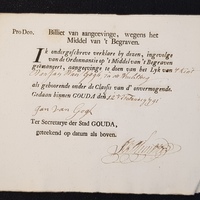 Pro Deo. Billiet van aangeevinge, wegens het
Middel van 't Begraven.
Ik ondergeschreve verklare by dezen, ingevolge
van de Ordonnantie op 't Middel van 't Begraven
geëmaneert, aangeevinge te doen van het Lyk van 't kint
van Jan van Gogh in de
als gehoorende onder de Classis van d' onvermogende.
Gedaan binnen GOUDA den 12
Jan van Gogh
Ter Secretarye der Stad GOUDA,
geteekend op datum als boven.